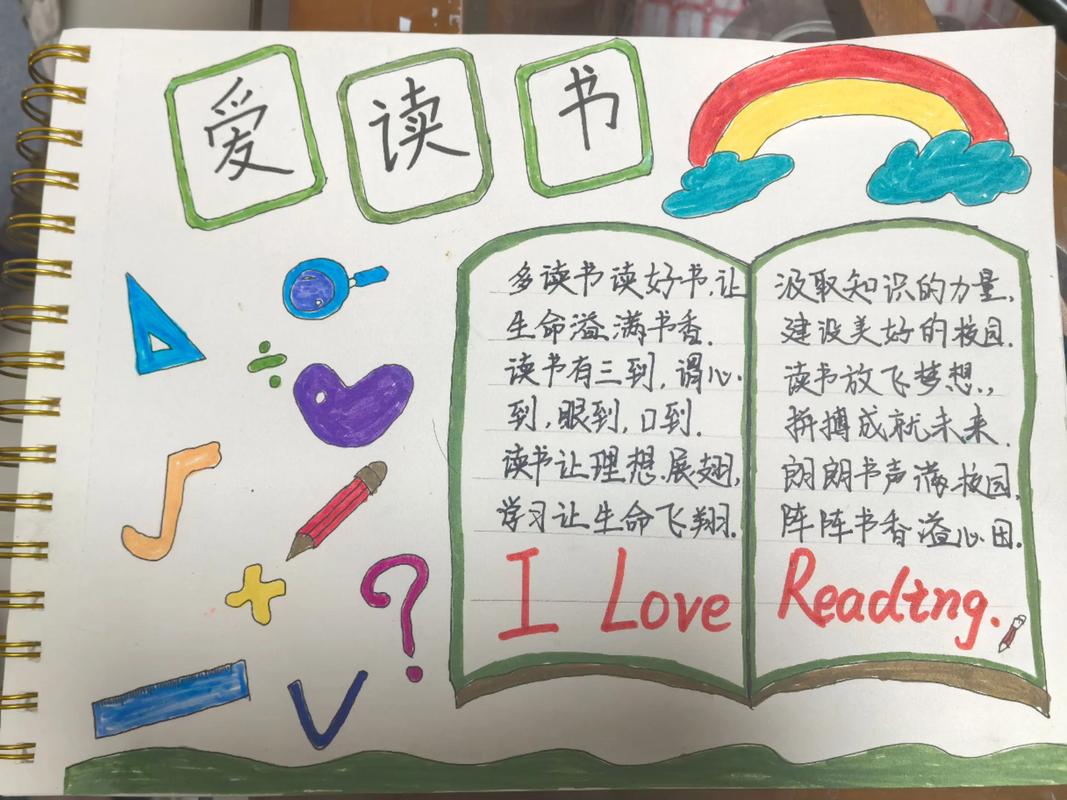 爱 读 书
多读书读好书,让
生命溢满书香.
读书有三到,谓心
到,眼到,口到.
读书让理想展翅,
学习让生命飞翔.
I Love
汲取知识的力量,
建设美好的校园.
读书放飞梦想,
拼搏成就未来.
朗朗书声满校园,
阵阵书香溢心田.
Reading.